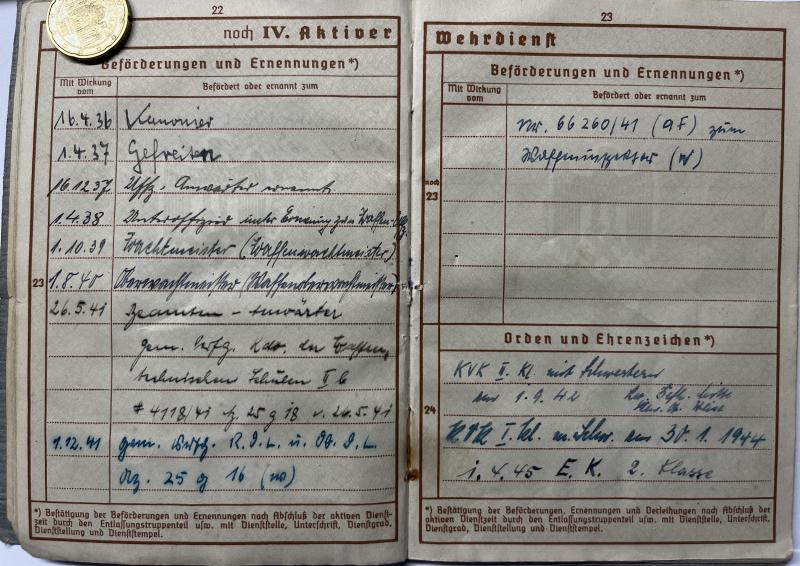 22
noch IV. Aktiver
Beförderungen und Ernennungen*)
Mit Wirkung vom
Befördert oder ernannt zum
16.4.36 Kanonier
1.4.37 Gefreiten
16.12.37 Uffz. Anwärter ernannt
1.4.38 Unteroffizier unter Ernennung zum Waffen-
1.10.39 Wachtmeister (Waffenwachtmeister)
23 1.8.40 Oberwachtmeister (Waffenoberwachtmeister)
26.5.41 Beamten-anwärter
gem. Verfg. Kdo. der Waffen
technischen Schulen II b
# 4118/41 Az 25 g 18 v. 26.5.41
1.12.41 gem. Verfg. R.d.L. u. Ob.d.L.
Az. 25 g 16
*) Bestätigung der Beförderungen und Ernennungen nach Abschluß der aktiven Dienst-
zeit durch den Entlassungstruppenteil usw. mit Dienststelle, Unterschrift, Dienstgrad,
Dienststellung und Dienststempel.
23
Wehrdienst
Beförderungen und Ernennungen*)
Mit Wirkung vom
Befördert oder ernannt zum
Nr. 66260/41 zum
Waffeninspektor
noch 23
Orden und Ehrenzeichen*)
KVK II. Kl. mit Schwertern
am 1.9.42
24
KVK I. Kl. m. Schw. am 30.1.1944
1.4.45 E.K. 2. Klasse
*) Bestätigung der Beförderungen, Ernennungen und Verleihungen nach Abschluß der
aktiven Dienstzeit durch den Entlassungstruppenteil usw. mit Dienststelle, Unterschrift,
Dienstgrad, Dienststellung und Dienststempel.